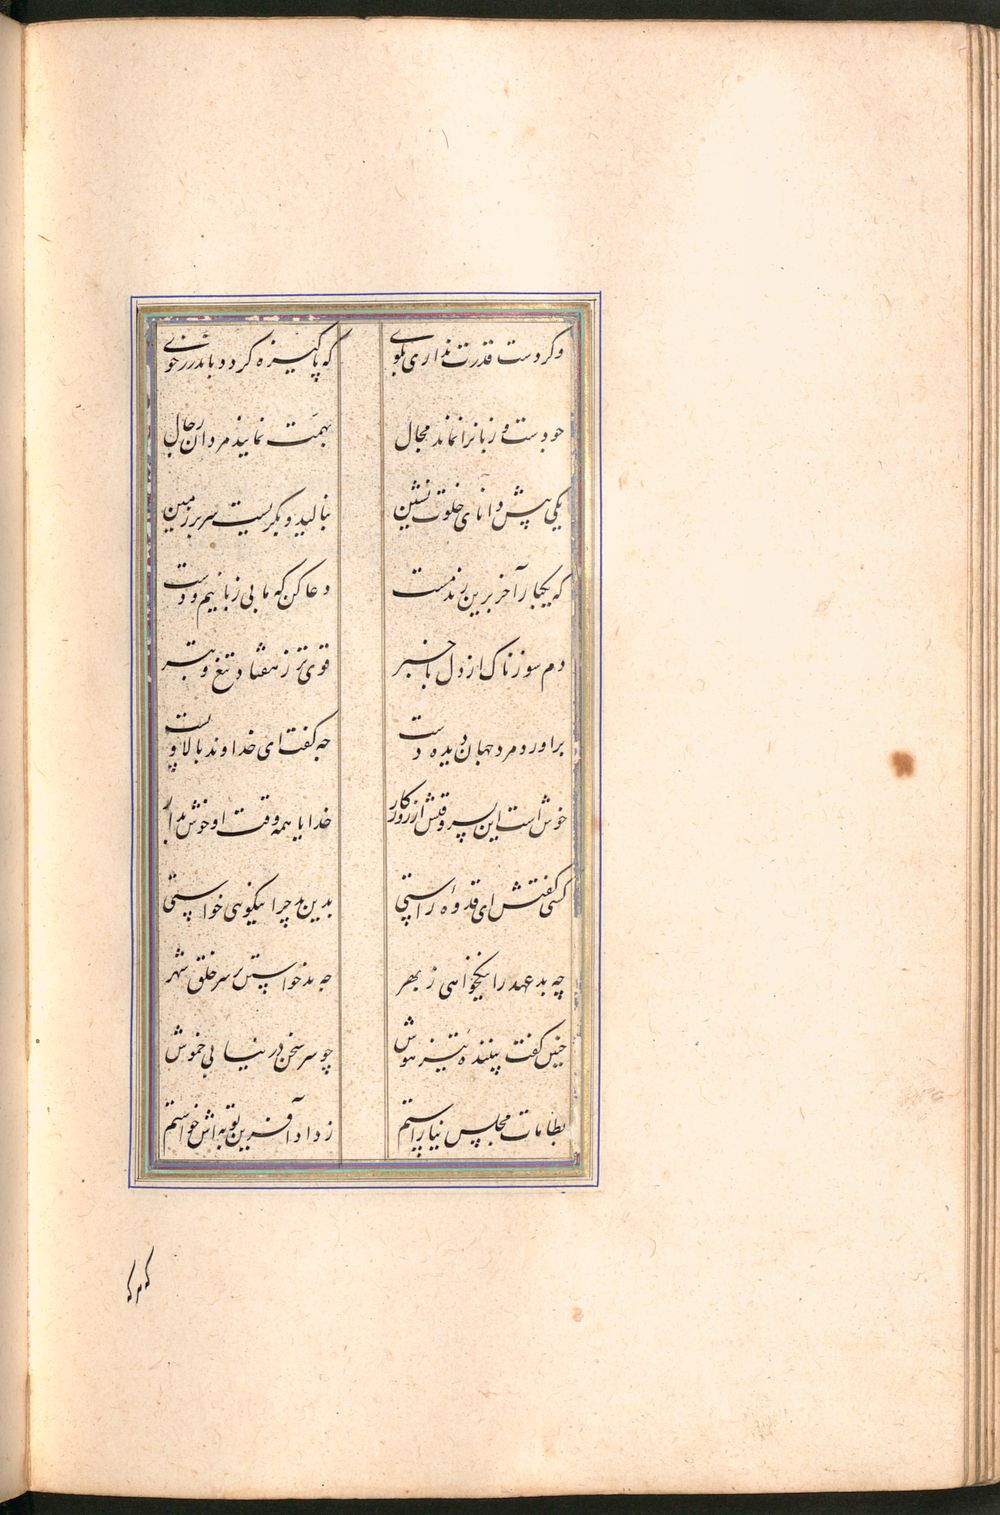 وکر دست قدرت نداری بکوی که پاکیزه کردد باندرز خوی
جو دست و زبانرا نماند مجال بهمت نمایند مردان رجال
یکی پیش دانای خلوت نشین بنالید و بکریست سر بر زمین
که یکبار آخر برین رند مست دعا کن که ما بی زبانیم و دست
دم سوزناک از دل با خبر قوی تر ز هفتاد تیغ و تبر
براورد مرد جهان دیده دست جه کفت ای خداوند بالا و پست
خوش است این پسر وقتش از روزکار خدایا همه وقت او خوش بدار
کسی کفتش ای قدوه راستی بدین بد چرا نیکویی خواستی
چه بد عهد را نیک خواهی ز بهر جه بد خواستن بر سر خلق شهر
جنین کفت بیننده تیز هوش چو سر سخن در نیابی خموش
بطامات مجلس نیاراستم ز داد آفرین توبه اش خواستم
که مر که